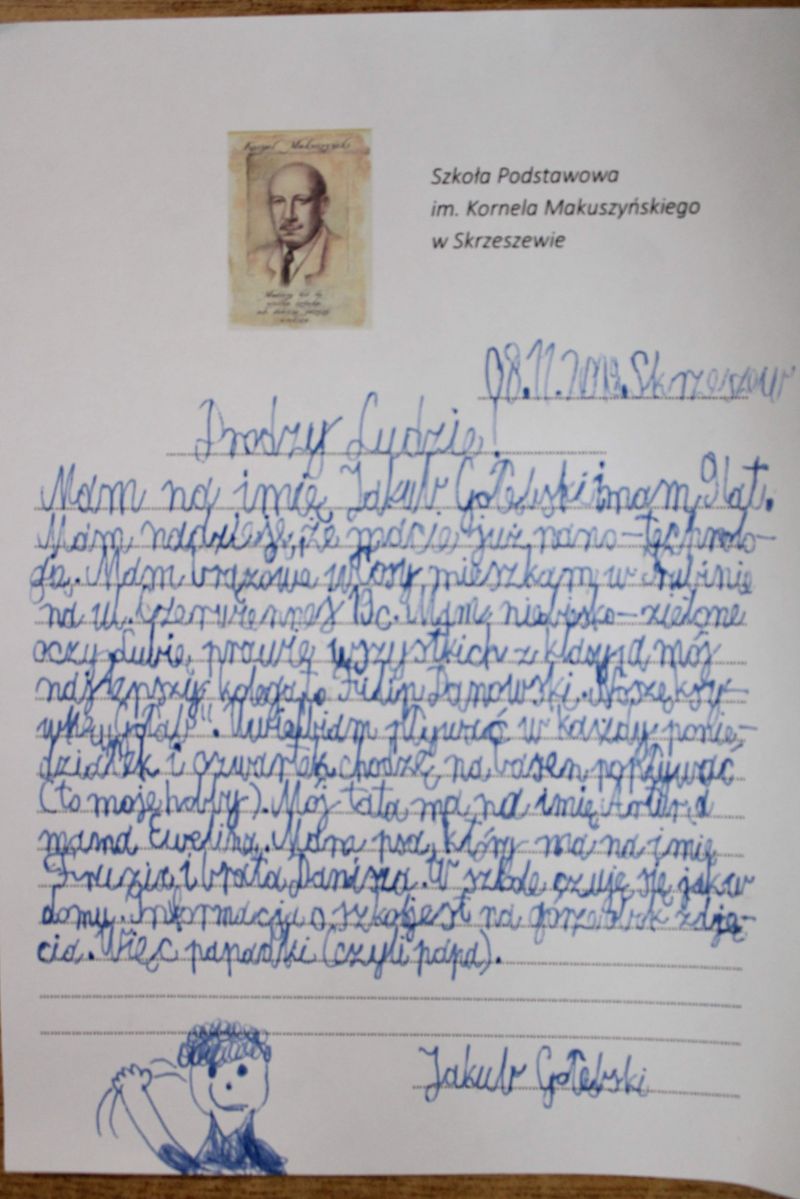 Kornel Makuszyński
Szkoła Podstawowa
im. Kornela Makuszyńskiego
w Skrzeszewie
08.11. Skrzeszew
Drodzy Ludzie!
Mam na imię Jakub Gołębski i mam 9 lat.
Mam nadzieję, że macie już nano-technolo-
gię. Mam brązowe włosy mieszkam w
na ul. Czerwiennej 13c. Mam niebiesko-zielone
oczy. Lubię prawie wszystkich z klasy, a mój
najlepszy kolega to Filip Danowski. Noszę ksy-
wkę „Gołąb". Uwielbiam pływać w każdy ponie-
działek i czwartek chodzę na basen popływać
(to moje hobby). Mój tata ma na imię Artur, a
mama Ewelina. Mam psa, który ma na imię
Fruzia i brata Daniela. W szkole czuję się jak w
domu. Informacja o szkole jest na górze obok zdję-
cia. Więc papaśki (czyli papa).
Jakub Gołębski